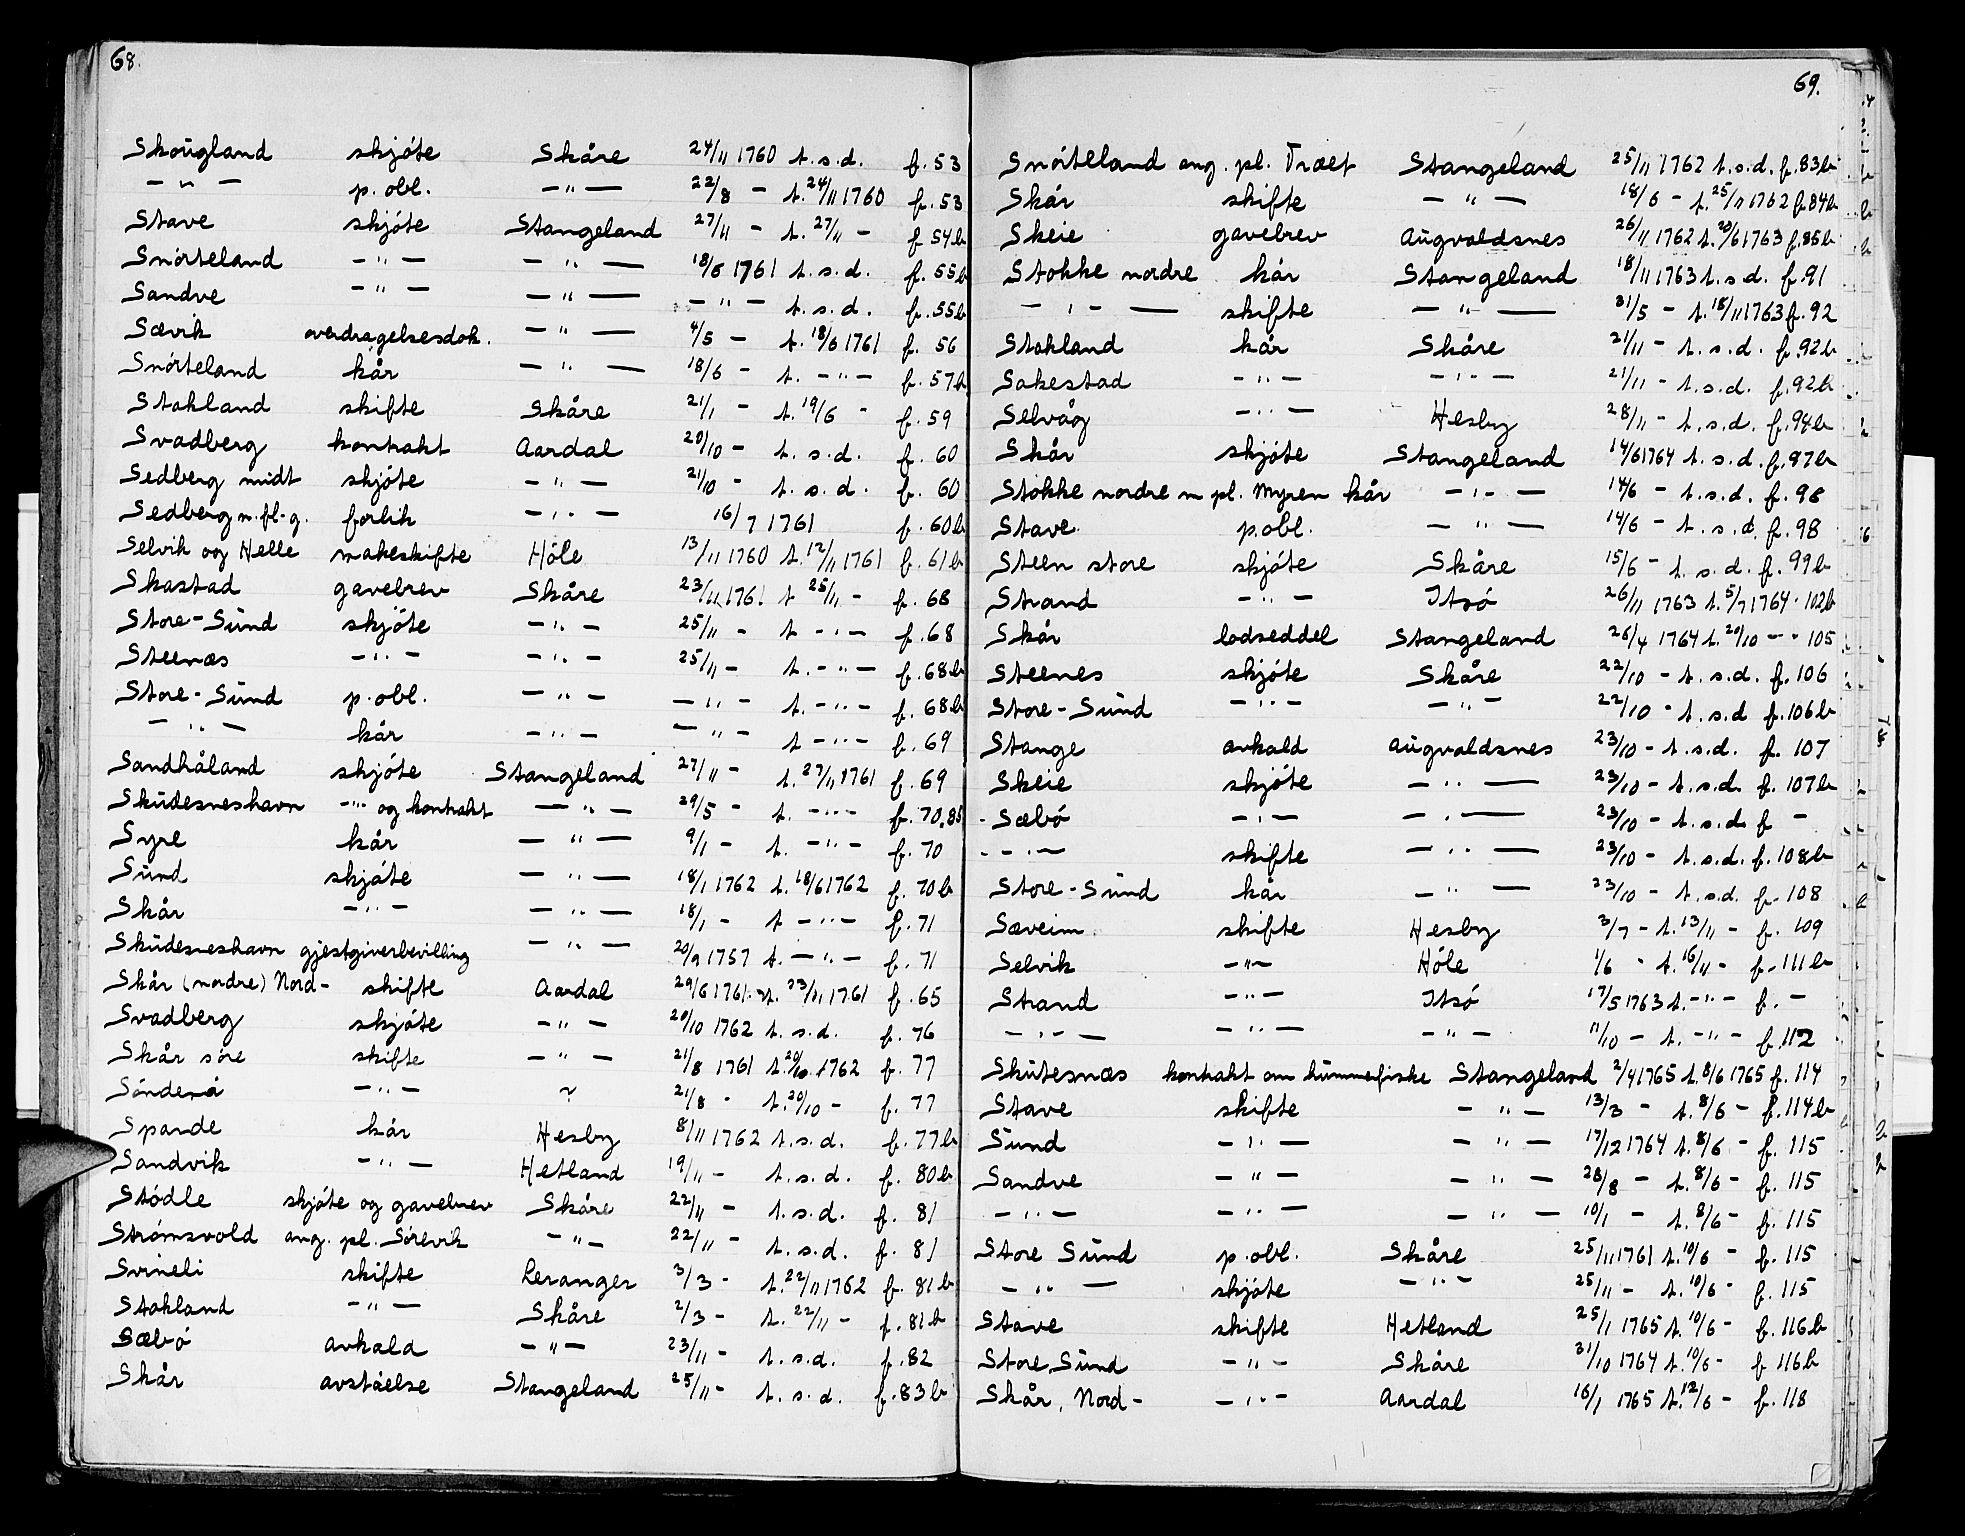 68.
Skougland skjöte Skåre 24/11 1760 t. s. d. f. 53
— " — p. obl. — " — 22/8 - t. 24/11 1760 f. 53
Stave skjöte Stangeland 27/11 - t. 27/11 - f 54b
Snörteland — " — — " — 18/6 1761 t. s. d. f. 55b
Sandve — " — — " — — " — t. s. d. f. 55b
Sævik overdragelsesdok. — " — 4/5 - t. 18/6 1761 f. 56
Snörteland kår — " — 18/6 - t. — " — f. 57b
Stakland skifte Skåre 21/1 - t. 19/6 - f. 59
Svadberg kontrakt Aardal 20/10 - t. s. d. f. 60
Sedberg midt skjöte — " — 21/10 - t. s. d. f. 60
Sedberg m. fl. g. forlik — " — 16/7 1761 f. 60b
Selvik og Helle makeskifte Höle 13/11 1760 t. 12/11 1761 f. 61b
Skastad gavebrev Skåre 23/11 1761 t 25/11 - f. 68
Store-Sund skjöte — " — 25/11 - t — " — f. 68
Steenæs — " — — " — 25/11 - t. — " — f. 68b
Store-Sund p. obl. — " — — " — t. — " — f. 68b
— " — kår — " — — " — t — " — f. 69
Sandhåland skjöte Stangeland 27/11 - t. 27/11 1761 f. 69
Skudesneshavn — " — og kontrakt — " — 29/5 - t. — " — f. 70, 85
Syre kår — " — 9/1 - t. — " — f. 70
Sund skjöte — " — 18/1 1762 t. 18/6 1762 f. 70b
Skår — " — — " — 18/1 - t — " — f. 71
Skudesneshavn gjestgiverbevilling — " — 20/9 1757 t. — " — f. 71
Skår (nordre) Nord- skifte Aardal 29/6 1761 t. 23/11 1761 f. 65
Svadberg skjöte — " — 20/10 1762 t. s. d. f. 76
Skår söre skifte — " — 21/8 1761 t. 20/10 1762 f. 77
Sönderå — " — ~ 21/8 - t. 20/10 - f. 77
Spande kår Hesby 8/11 1762 t. s. d. f. 77b
Sandvik — " — Hetland 19/11 - t. s. d. f. 80b
Stödle skjöte og gavebrev Skåre 22/11 - t. s. d. f. 81
Strømsvold ang. pl. Sörevik — " — 22/11 - t. s. d. f. 81
Svineli skifte Leranger 3/3 - t. 22/11 1762 f. 81b
Stakland — " — Skåre 2/3 - t. 22/11 - f. 81b
Sæbö avkald — " — 23/11 - t. s. d. f. 82
Skår avståelse Stangeland 25/11 - t. s. d. f. 83b
69.
Snörteland ang. pl. Træet Stangeland 25/11 1762 t. s. d. f. 83b
Skår skifte — " — 18/6 - t. 25/11 1762 f. 84b
Skeie gavebrev Augvaldsnes 26/11 1762 t. 20/6 1763 f. 85b
Stokke nordre kår Stangeland 18/11 1763 t. s. d. f. 91
— " — skifte — " — 31/5 - t. 18/11 1763 f. 92
Stakland kår Skåre 21/11 - t. s. d. f. 92b
Sakestad — " — — " — 21/11 - t. s. d. f. 92b
Selvåg — " — Hesby 28/11 - t. s. d. f. 94b
Skår skjöte Stangeland 14/6 1764 t. s. d. f. 97b
Stokke nordre m pl. Myren kår — " — 14/6 - t. s. d. f. 98
Stave p. obl. — " — 14/6 - t. s. d. f. 98
Steen store skjöte Skåre 15/6 - t. s. d. f. 99b
Strand — " — Itsö 26/11 1763 t. 5/7 1764 - 102b
Skår lodseddel Stangeland 26/4 1764 t. 20/10 - - 105
Steenes skjöte Skåre 22/10 - t. s. d. f. 106
Store-Sund — " — — " — 22/10 - t. s. d f. 106b
Stange avkald Augvaldsnes 23/10 - t. s. d. f. 107
Skeie skjöte — " — 23/10 - t. s. d. f. 107b
Sæbö — " — — " — 23/10 - t. s. d. f -
— " — skifte — " — 23/10 - t. s. d. f. 108b
Store-Sund kår — " — 23/10 - t. s. d. f. 108
Sæveim skifte Hesby 3/7 - t. 13/11 - f. 109
Selvik — " — Höle 1/6 - t. 16/11 - f. 111b
Strand — " — Itsö 17/5 1763 t. — " — f. -
— " — — " — — " — 11/10 - t. — " — f. 112
Skutesnæs kontrakt om hummerfiske Stangeland 2/4 1765 t. 8/6 1765 f. 114
Stave skifte — " — 13/3 - t. 8/6 - f. 114b
Sund — " — — " — 17/12 1764 t. 8/6 - f. 115
Sandve — " — — " — 28/8 - t. 8/6 - f. 115
— " — — " — — " — 10/1 - t. 8/6 - f. 115
Store Sund p. obl. Skåre 25/11 1761 t. 10/6 - f. 115
— " — skjöte — " — 25/11 - t. 10/6 - f. 115
Stave skifte Hetland 25/1 1765 t. 10/6 - f. 116b
Store Sund — " — Skåre 31/10 1764 t. 10/6 - f 116b
Skår, Nord- — " — Aardal 16/1 1765 t. 12/6 - f. 118